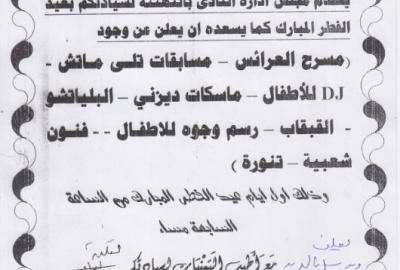 يتقدم مجلس ادارة النادى بالتهنئة لسيادتكم بعيد
الفطر المبارك كما يسعده ان يعلن عن وجود
(مسرح العرائس – مسابقات تلى ماتش –
DJ للأطفال – ماسكات ديزني – البلياتشو
- القبقاب – رسم وجوه للاطفال -- فنون
شعبية – تنورة )
وذلك اول ايام عيد الفطر المبارك من الساعة
السابعة مساء
مع أطيب التمنيات لسيادتكم